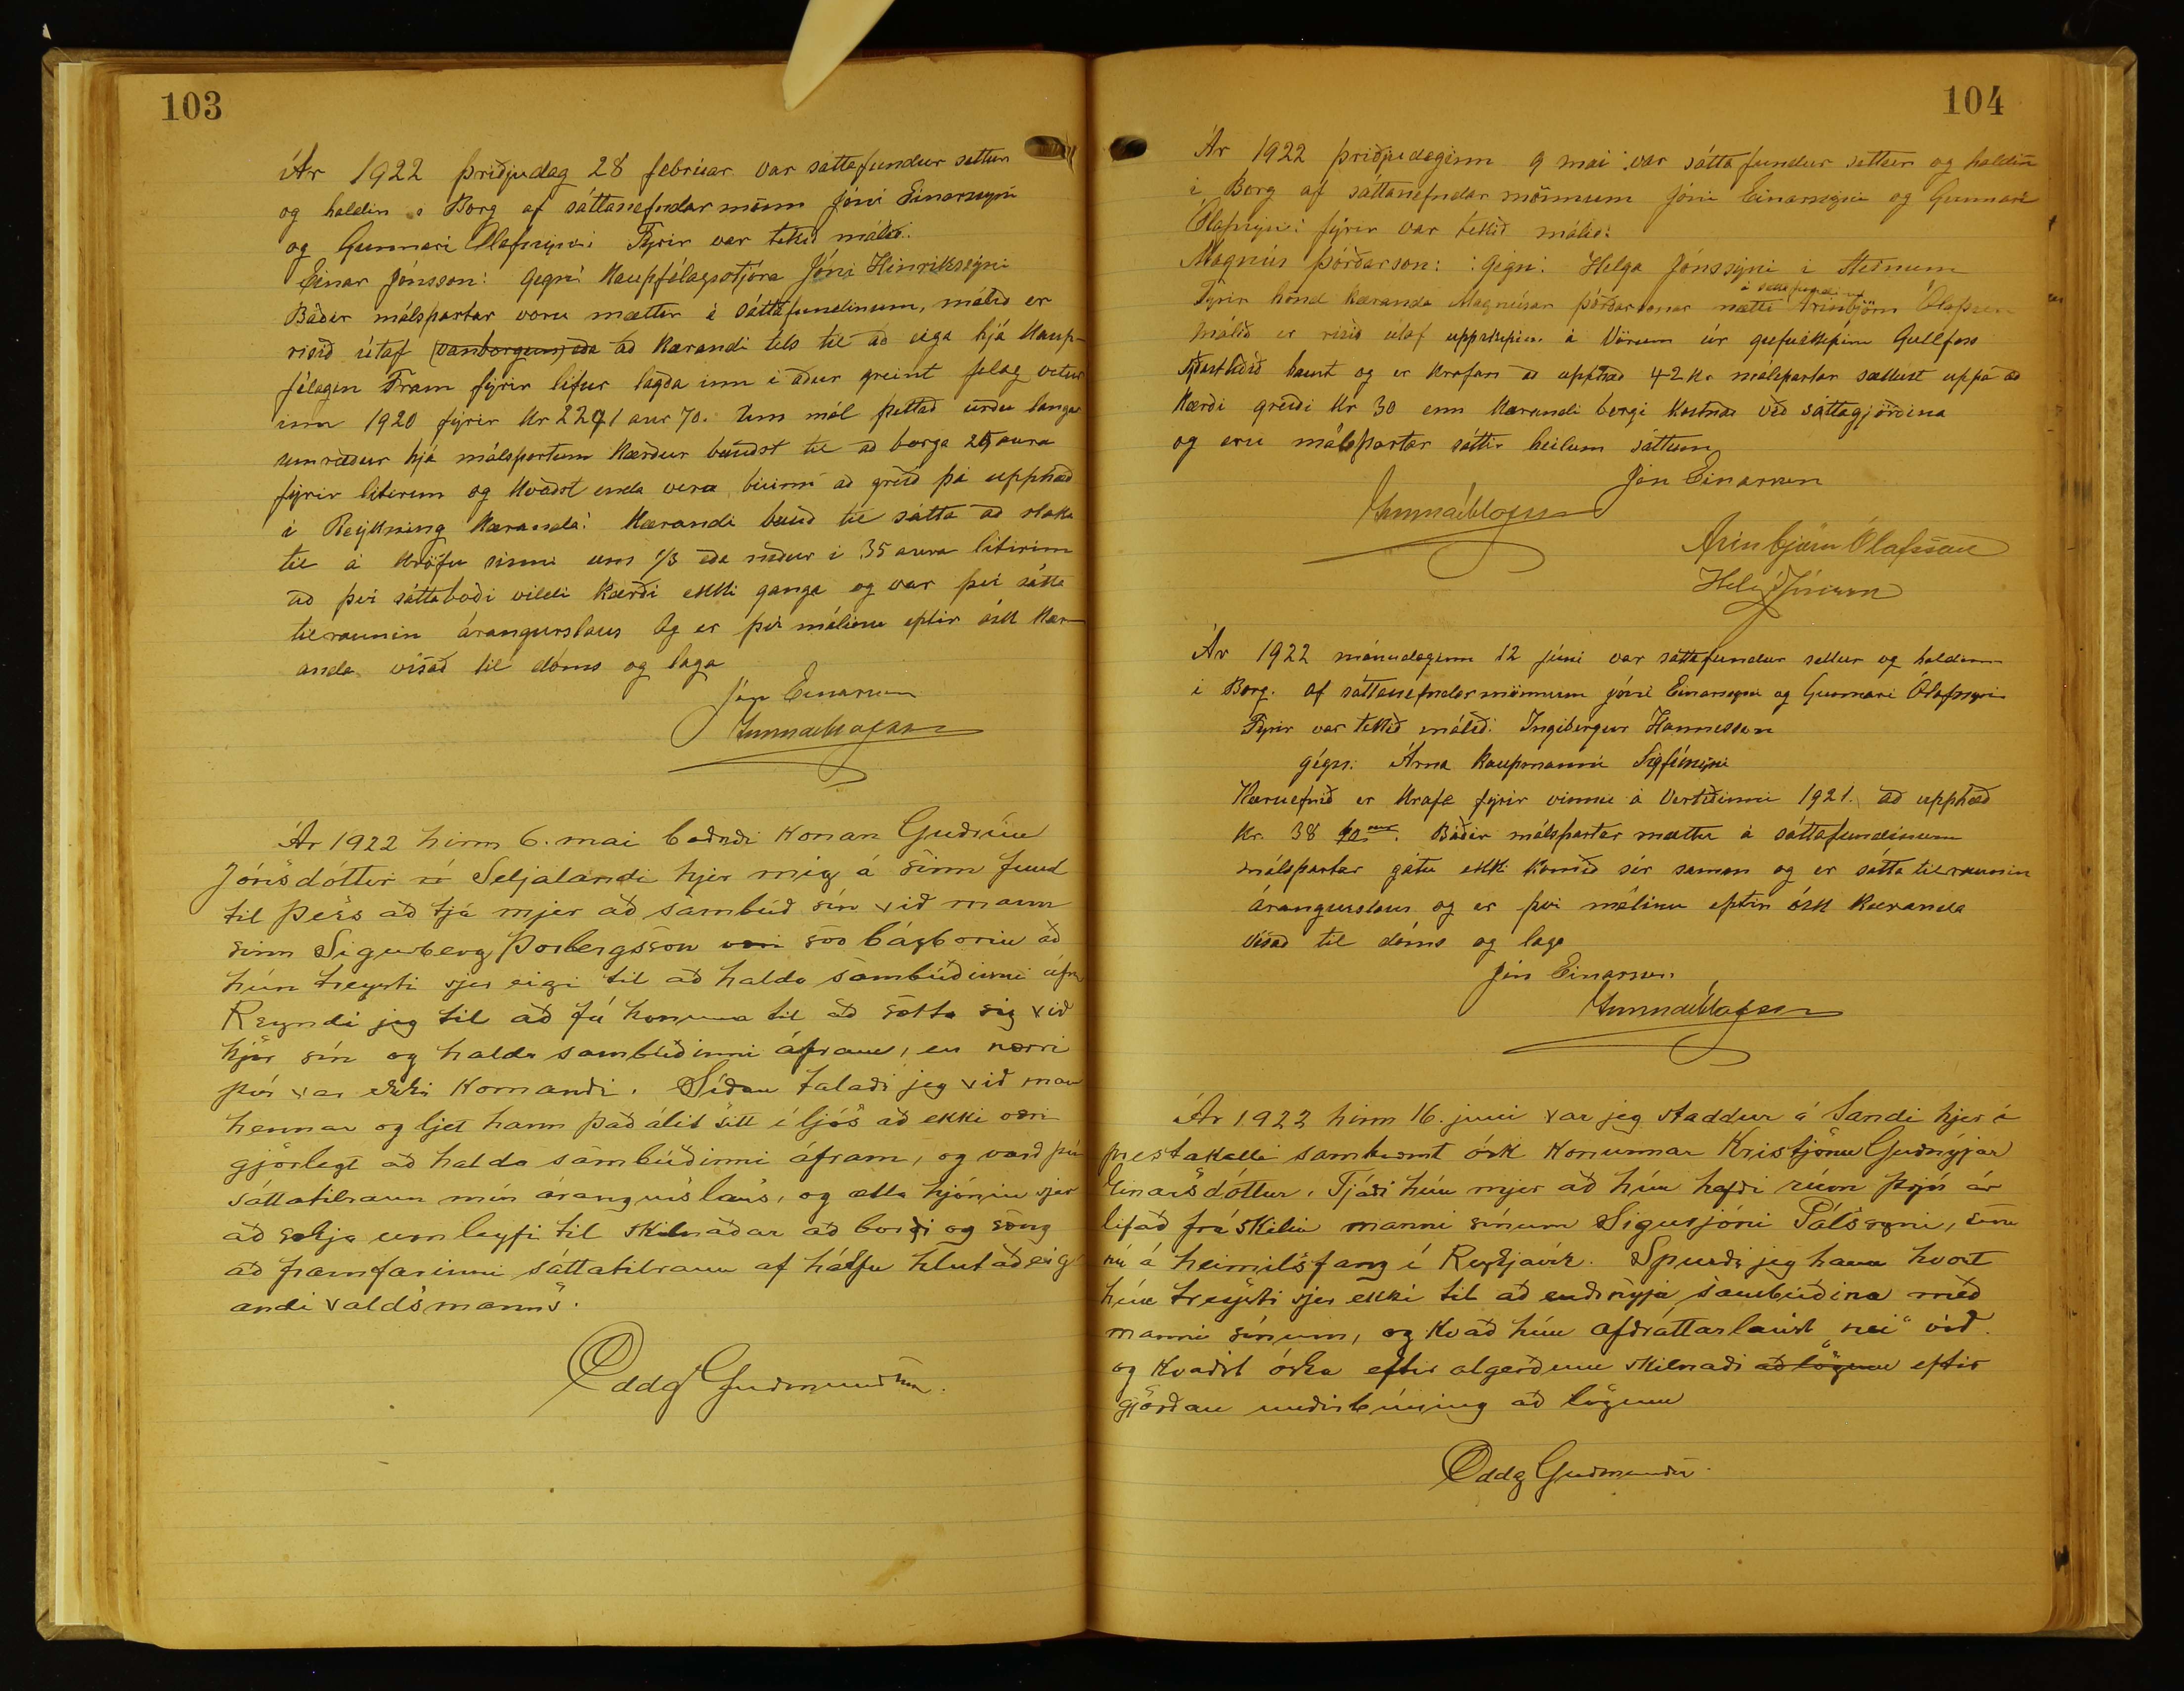 103
Ár 1922 þriðjudag 28 febrúar var sáttafundur settur
og haldin í Borg af sáttanefndar mönn Jóni Einarssyni
og Gunnari Ólafssyni Fyrir var tekið málið:
Einar Jónsson: gegn: Kaupfélagsstjóra Jóni Hinrikssyni
Báðir málspartar voru mættir á sáttafundinum, málið er
risið útaf (vanborgun) eða að Kærandi tels til að eiga hjá Kaup-
félagin Fram fyrir lifur lagða inn í áður greint félag vetur
inn 1920 fyrir Kr 2291 aur 70. Um mál þettað urðu langar
umræður hjá málspörtum Kærður bauðst til að borga 25 aura
fyrir literinn og kvaðst enda vera búinn að greið þá upphæð
í Reykning Kæranda: Kærandi bauð til sátta að slaka
til á Kröfu sinni um 1/3 eða niður í 35 aura litirinn
að því sáttaboði vildi Kærði ekki ganga og var því sátta
tilraunin árangurslaus Og er því málinu eptir ósk Kær-
anda vísað til dóms og laga
Jón Einarsson
Gunnar Ólafsson
Ár 1922 hinn 6. mai boðaði Konan Guðrún
Jónsdóttir á Seljalandi hjer mig á sinn fund
til þess að tjá mjer að sambúð sín við mann
sinn Sigurberg Þorbergsson væri svo bágborin að
hún treysti sjer eigi til að halda sambúðinni áfr
Reyndi jeg til að fá konuna til að sætta sig við
kjör sín og halda sambúðinni áfram, en nærri
því var ekki Komandi. Síðan talaði jeg við mann
hennar og ljet hann það álit sitt í ljós að ekki væri
gjörlegt að halda sambúðinni áfram, og varð því
sáttatilraun mín árangurslaus, og ætla hjónin sjer
að sækja um leyfi til skilnaðar að borði og sæng
að framfarinni sáttatilraun af hálfu hlutaðeig
andi valdsmanns.
Oddg Guðmundsson.
104
Ár 1922 þriðjudaginn 9 mai var sáttafundur settur og haldin
í Borg af sáttanefndar mönnum Jóni Einarssyni og Gunnari
Ólafssyni fyrir var tekið málið:
Magnús Þórðarson: :gegn: Helga Jónssyni í Steinum
á sáttafundinum
Fyrir hönd kæranda Magnúsar Þórðarsonar mætti Arinbjörn Ólafsson
málið er risið útaf uppskipun á Vörum úr gufuskipinu Gullfoss
síðastliðið haust og er krafan að upphæð 42 Kr málspartar sættust uppá að
Kærði greiði Kr 30 enn Kærandi bergi Kostnað við sáttagjörðina
og eru málspartar sáttir heilum sáttum
Jón Einarsson
Gunnar Ólafsson
Arinbjörn Ólafsson
Helgi Jónsson
Ár 1922 mánudaginn 12 júní var sáttafundur settur og haldinn
í Borg. af sáttanefndarmönnum Jóni Einarssyni og Gunnari Ólafssyni
Fyrir var tekið málið: Ingibergur Hannesson
gégn: Árna Kaupmanni Sigfússyni
Kæruefnið er Krafa fyrir vinnu á Vertíðinni 1921. að upphæð
Kr. 38 . Báðir málspartar mættu á sáttafundinum
málspartar gátu ekki komið sér saman og er sátta tilraunin
árangurslaus og er því málinu eptir ósk kæranda
vísað til dóms og laga
Jón Einarsson
Gunnar Ólafsson
Ár 1922 hinn 16. juni var jeg staddur á Sandi hjer í
prestakalli samkvæmt ósk Konunnar Kristjönu Guðnýjar
Einarsdóttur. Tjáði hún mjer að hún hefði rúm þrjú ár
lifað fráskilin manni sínum Sigurjóni Pálssyni, sem
nú á heimilisfang í Reykjavík. Spurði jeg hana hvort
hún treysti sjer ekki til að endurnýja sambúðina með
manni sínum, og kvað hún afdráttarlaust "nei" við.
og kvaðst óska eftir algerðum skilnaði að lögum eftir
gjörðan undirbúning að lögum
Oddg Guðmundss.